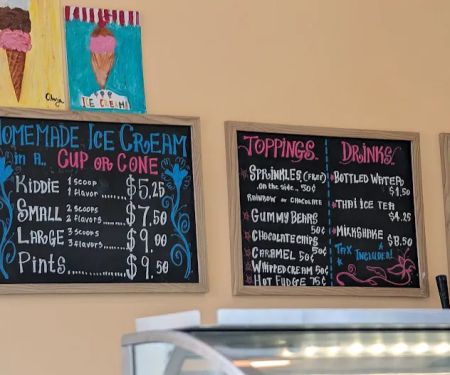 ICE CREAM!
HOMEMADE ICE CREAM
in a.. CUP or CONE
KIDDIE 1 SCOOP 1 FLAVOR $5.25
SMALL 2 SCOOPS 2 FLAVORS $7.50
LARGE 3 SCOOPS 3 FLAVORS $9.00
PINTS $9.50
TOPPINGS
SPRINKLES (FREE)
on the side.. 50¢
RAINBOW or CHOCOLATE
GUMMY BEARS
50¢
CHOCOLATE CHIPS
50¢
CARAMEL 50¢
WHIPPED CREAM 50¢
HOT FUDGE 75¢
DRINKS
BOTTLED WATER
$1.50
THAI ICE TEA
$4.25
MILKSHAKE
$8.50
TAX INCLUDED!